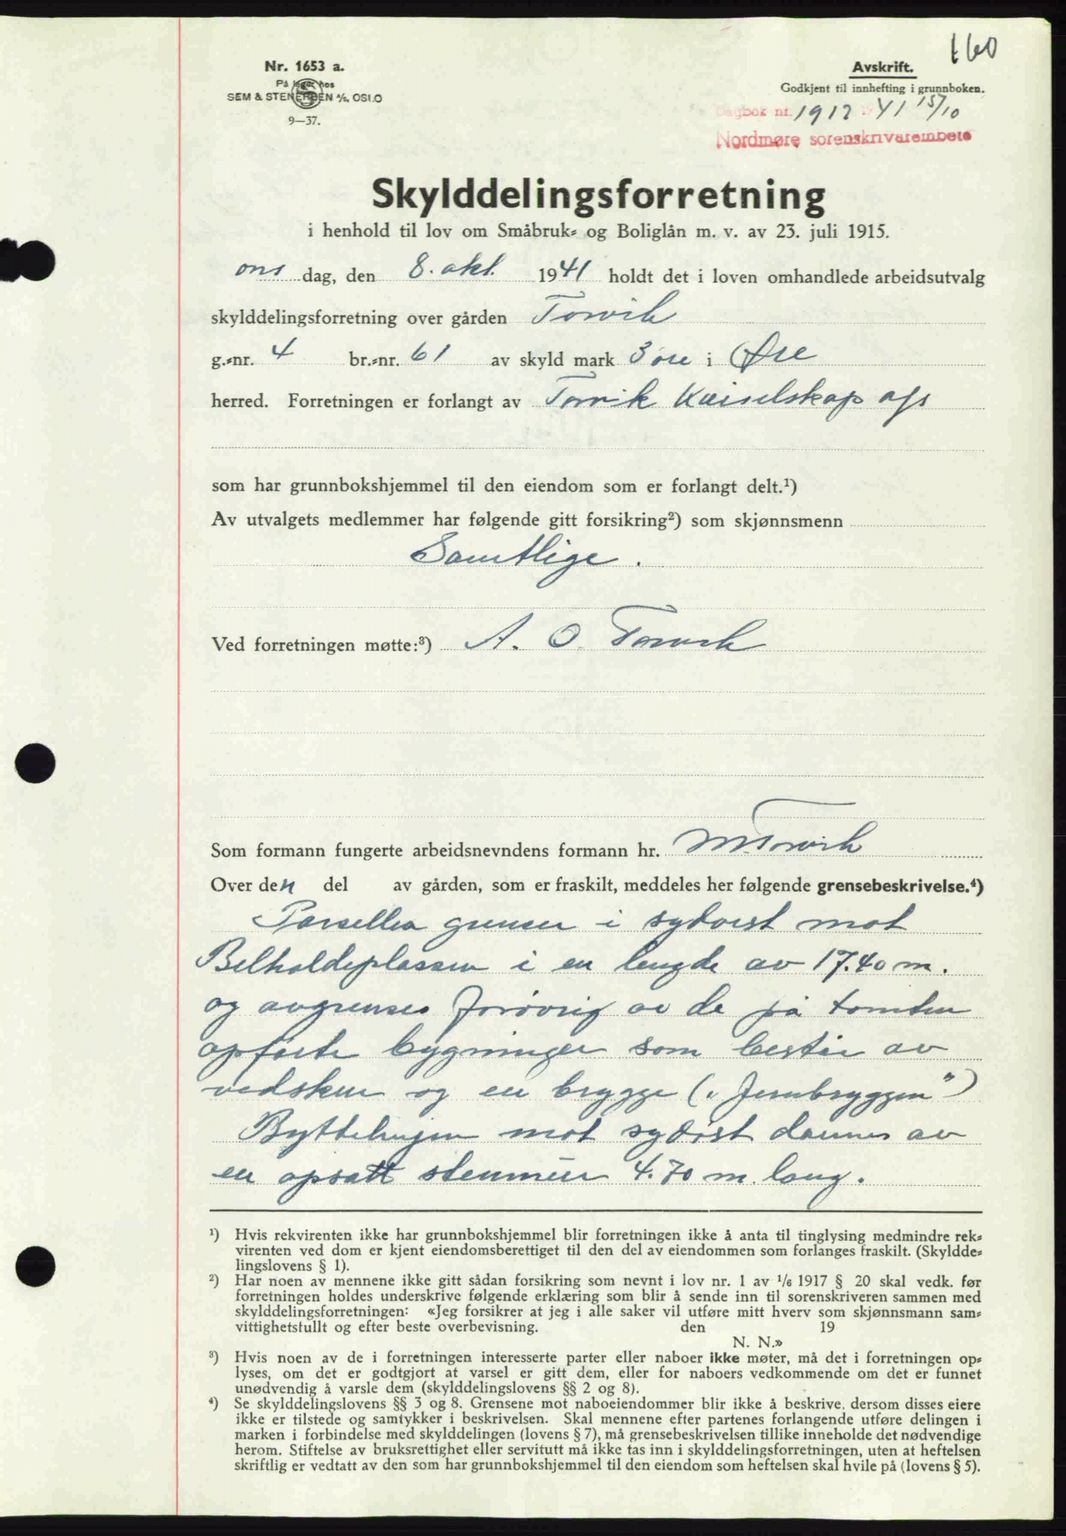 160
Nr. 1653 a.
På lager hos
SEM & STENERSEN A/S, OSLO
9—37.
Avskrift.
Godkjent til innhefting i grunnboken.
Dagbok nr. 1912 1941 15/10
Nordmøre sorenskrivarembete
Skylddelingsforretning
i henhold til lov om Småbruk- og Boliglån m. v. av 23. juli 1915.
ons dag, den 8. okt. 1941 holdt det i loven omhandlede arbeidsutvalg
skylddelingsforretning over gården Torvik
g.-nr. 4 br.-nr. 61 av skyld mark 3 øre i Øre
herred. Forretningen er forlangt av Torvik Kaiselskap a/s
som har grunnbokshjemmel til den eiendom som er forlangt delt.¹)
Av utvalgets medlemmer har følgende gitt forsikring²) som skjønnsmenn
Samtlige.
Ved forretningen møtte:³) A. O. Torvik
Som formann fungerte arbeidsnevndens formann hr. M. Torvik
Over den del av gården, som er fraskilt, meddeles her følgende grensebeskrivelse.⁴)
Parsellen grenser i sydvest mot
Belholdeplassen i en lengde av 17.40 m.
og avgrenses forøvrig av de på tomten
opførte bygninger som består av
vedskur og en brygge („Jernbryggen")
Byttelinjen mot sydøst dannes av
en opsatt stenmur 4.70 m. lang.
¹) Hvis rekvirenten ikke har grunnbokshjemmel blir forretningen ikke å anta til tinglysing medmindre rek-
virenten ved dom er kjent eiendomsberettiget til den del av eiendommen som forlanges fraskilt. (Skyldde-
lingslovens § 1).
²) Har noen av mennene ikke gitt sådan forsikring som nevnt i lov nr. 1 av 1/6 1917 § 20 skal vedk. før
forretningen holdes underskrive følgende erklæring som blir å sende inn til sorenskriveren sammen med
skylddelingsforretningen: «Jeg forsikrer at jeg i alle saker vil utføre mitt hverv som skjønnsmann sam-
vittighetsfullt og efter beste overbevisning. den 19
N. N.»
³) Hvis noen av de i forretningen interesserte parter eller naboer ikke møter, må det i forretningen op-
lyses, om det er godtgjort at varsel er gitt dem, eller for naboers vedkommende om det er funnet
unødvendig å varsle dem (skylddelingslovens §§ 2 og 8).
⁴) Se skylddelingslovens §§ 3 og 8. Grensene mot naboeiendommer blir ikke å beskrive, dersom disses eiere
ikke er tilstede og samtykker i beskrivelsen. Skal mennene efter partenes forlangende utføre delingen i
marken i forbindelse med skylddelingen (lovens § 7), må grensebeskrivelsen tillike inneholde det nødvendige
herom. Stiftelse av bruksrettighet eller servitutt må ikke tas inn i skylddelingsforretningen, uten at heftelsen
skriftlig er vedtatt av den som har grunnbokshjemmel til den eiendom som heftelsen skal hvile på (lovens § 5).